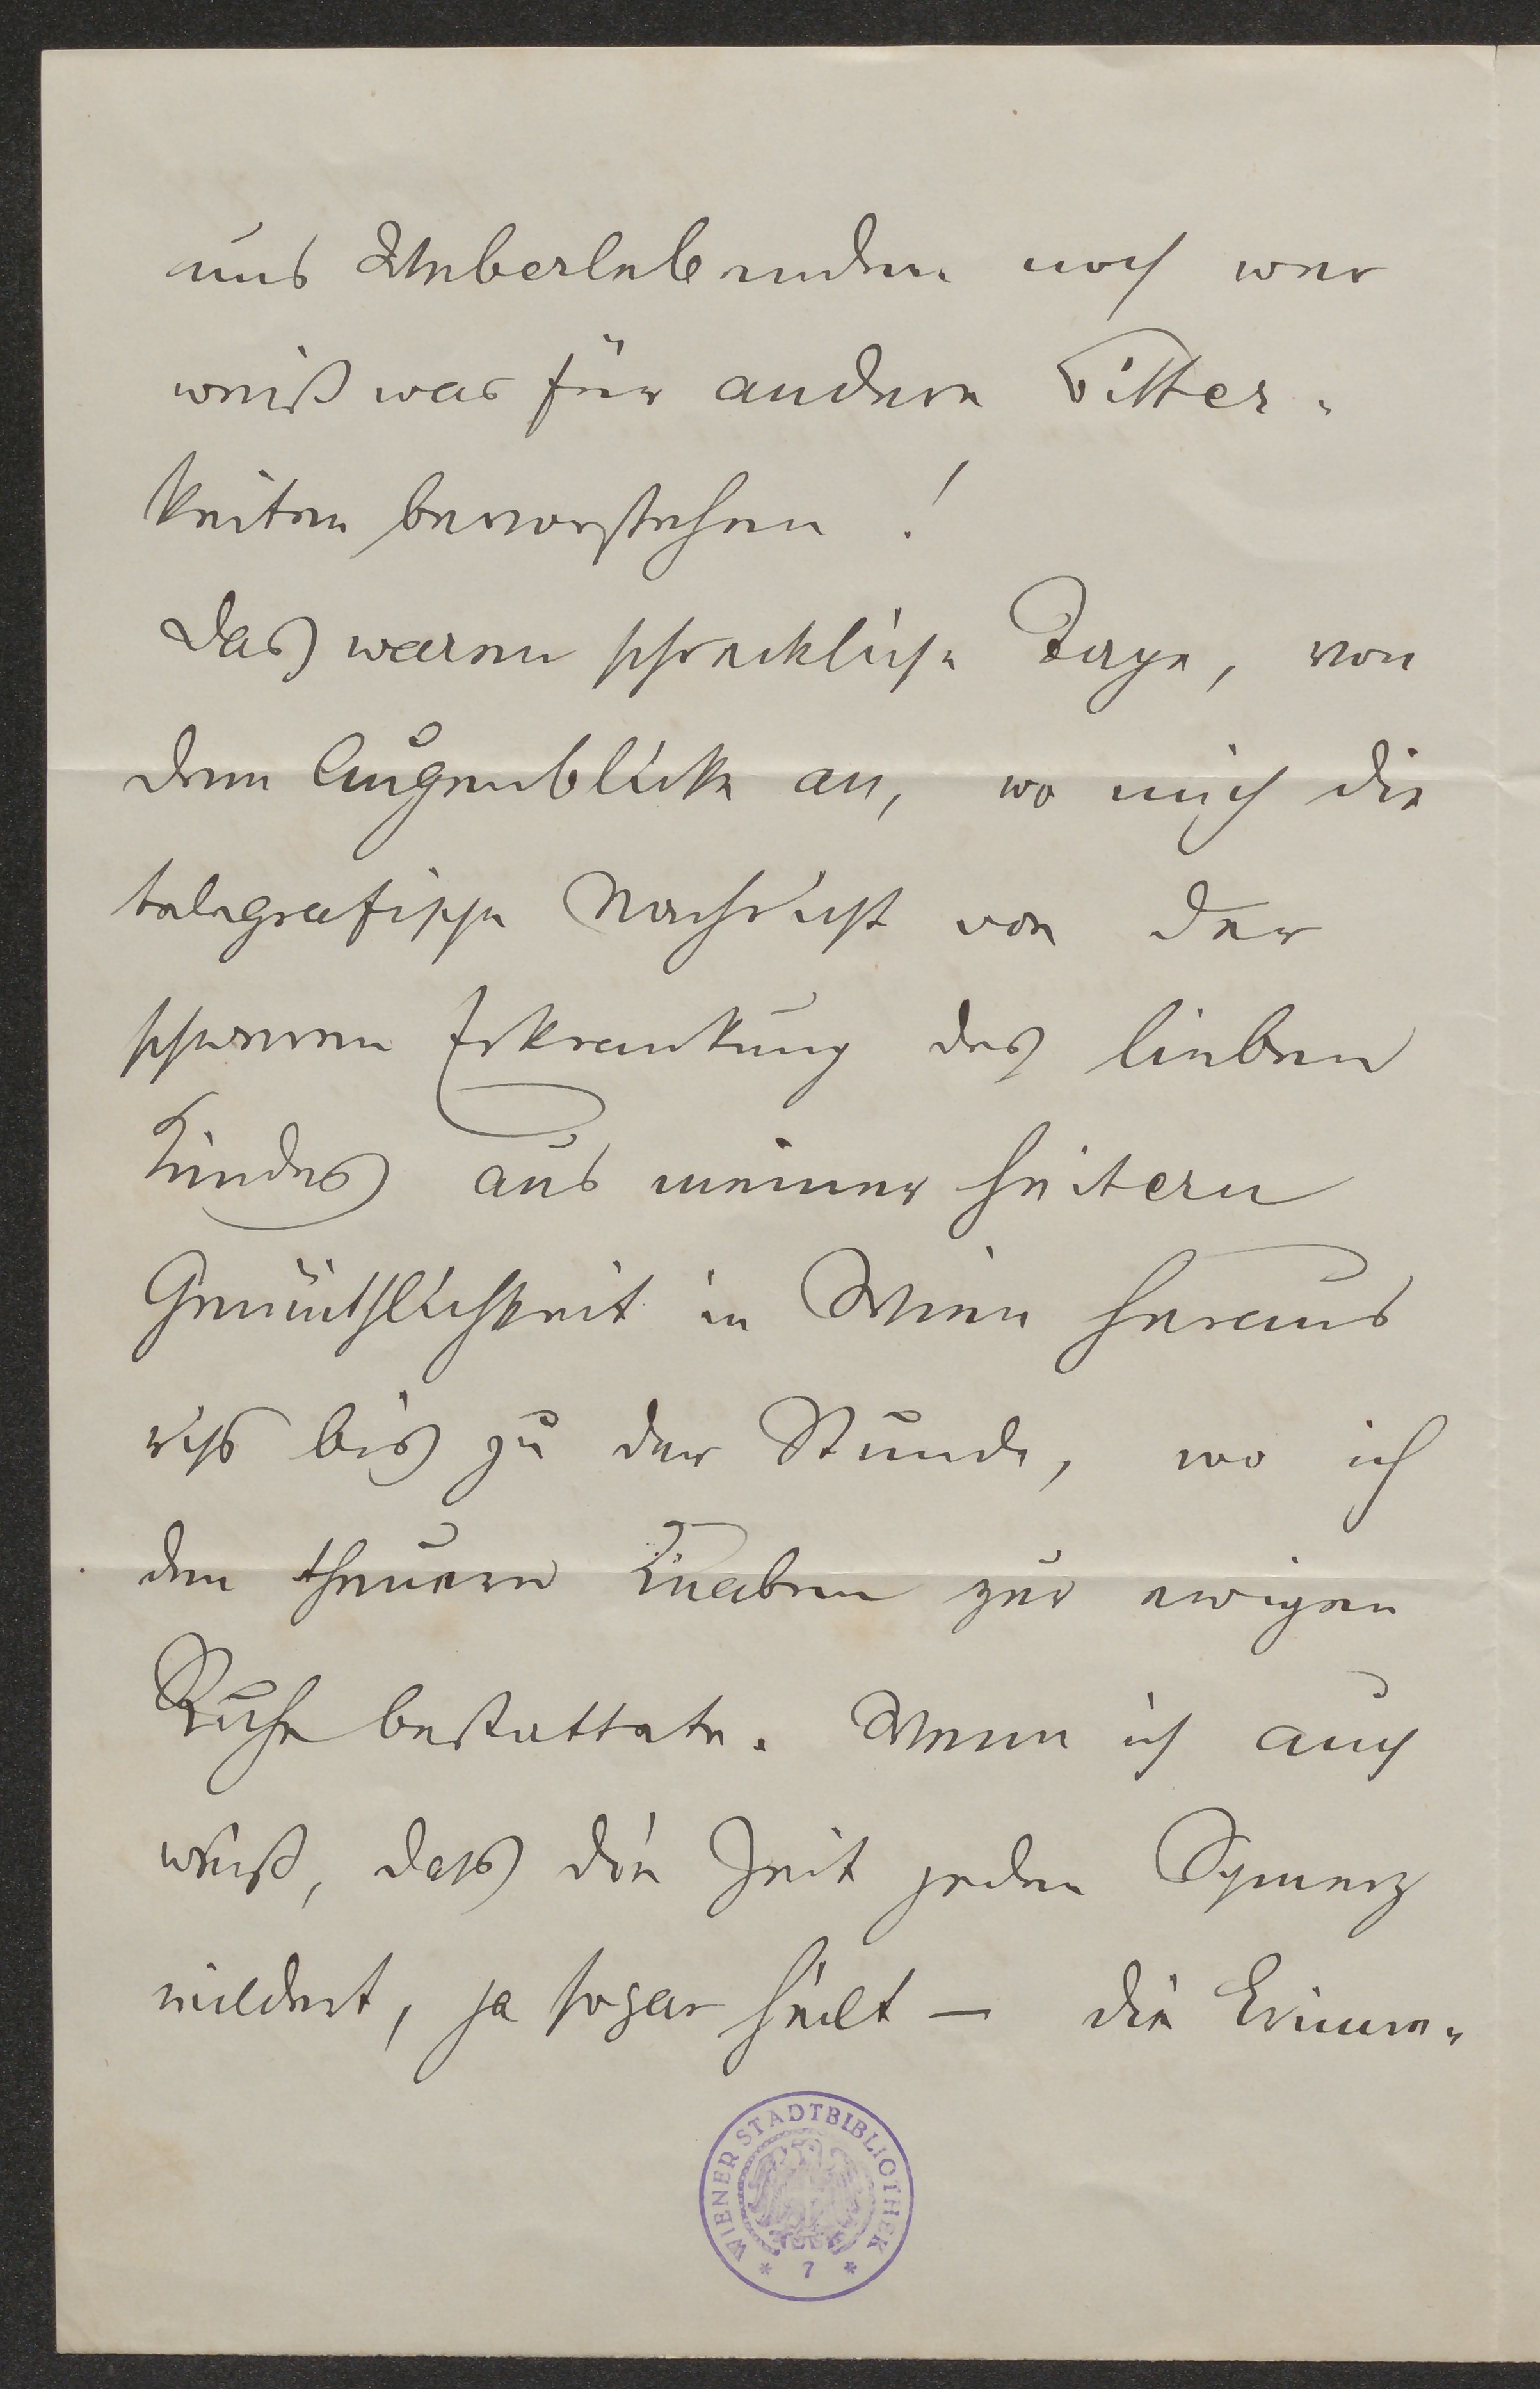 uns Ueberlebenden noch wer
weiß was für andere Bitter-
keiten bevorstehen!
Das waren schreckliche Tage, von
dem Augenblicke an, wo mich die
telegrafische Nachricht von der
schweren Erkrankung des lieben
Kindes aus meiner heitern
Gemüthlichkeit in Wien heraus
riß bis zu der Stunde, wo ich
den theuern Knaben zur ewigen
Ruhe bestattete. Wenn ich auch
weiß, daß die Zeit jeden Schmerz
mildert, ja sogar heilt — die Erinne-
WIENER STADTBIBLIOTHEK
* 7 *